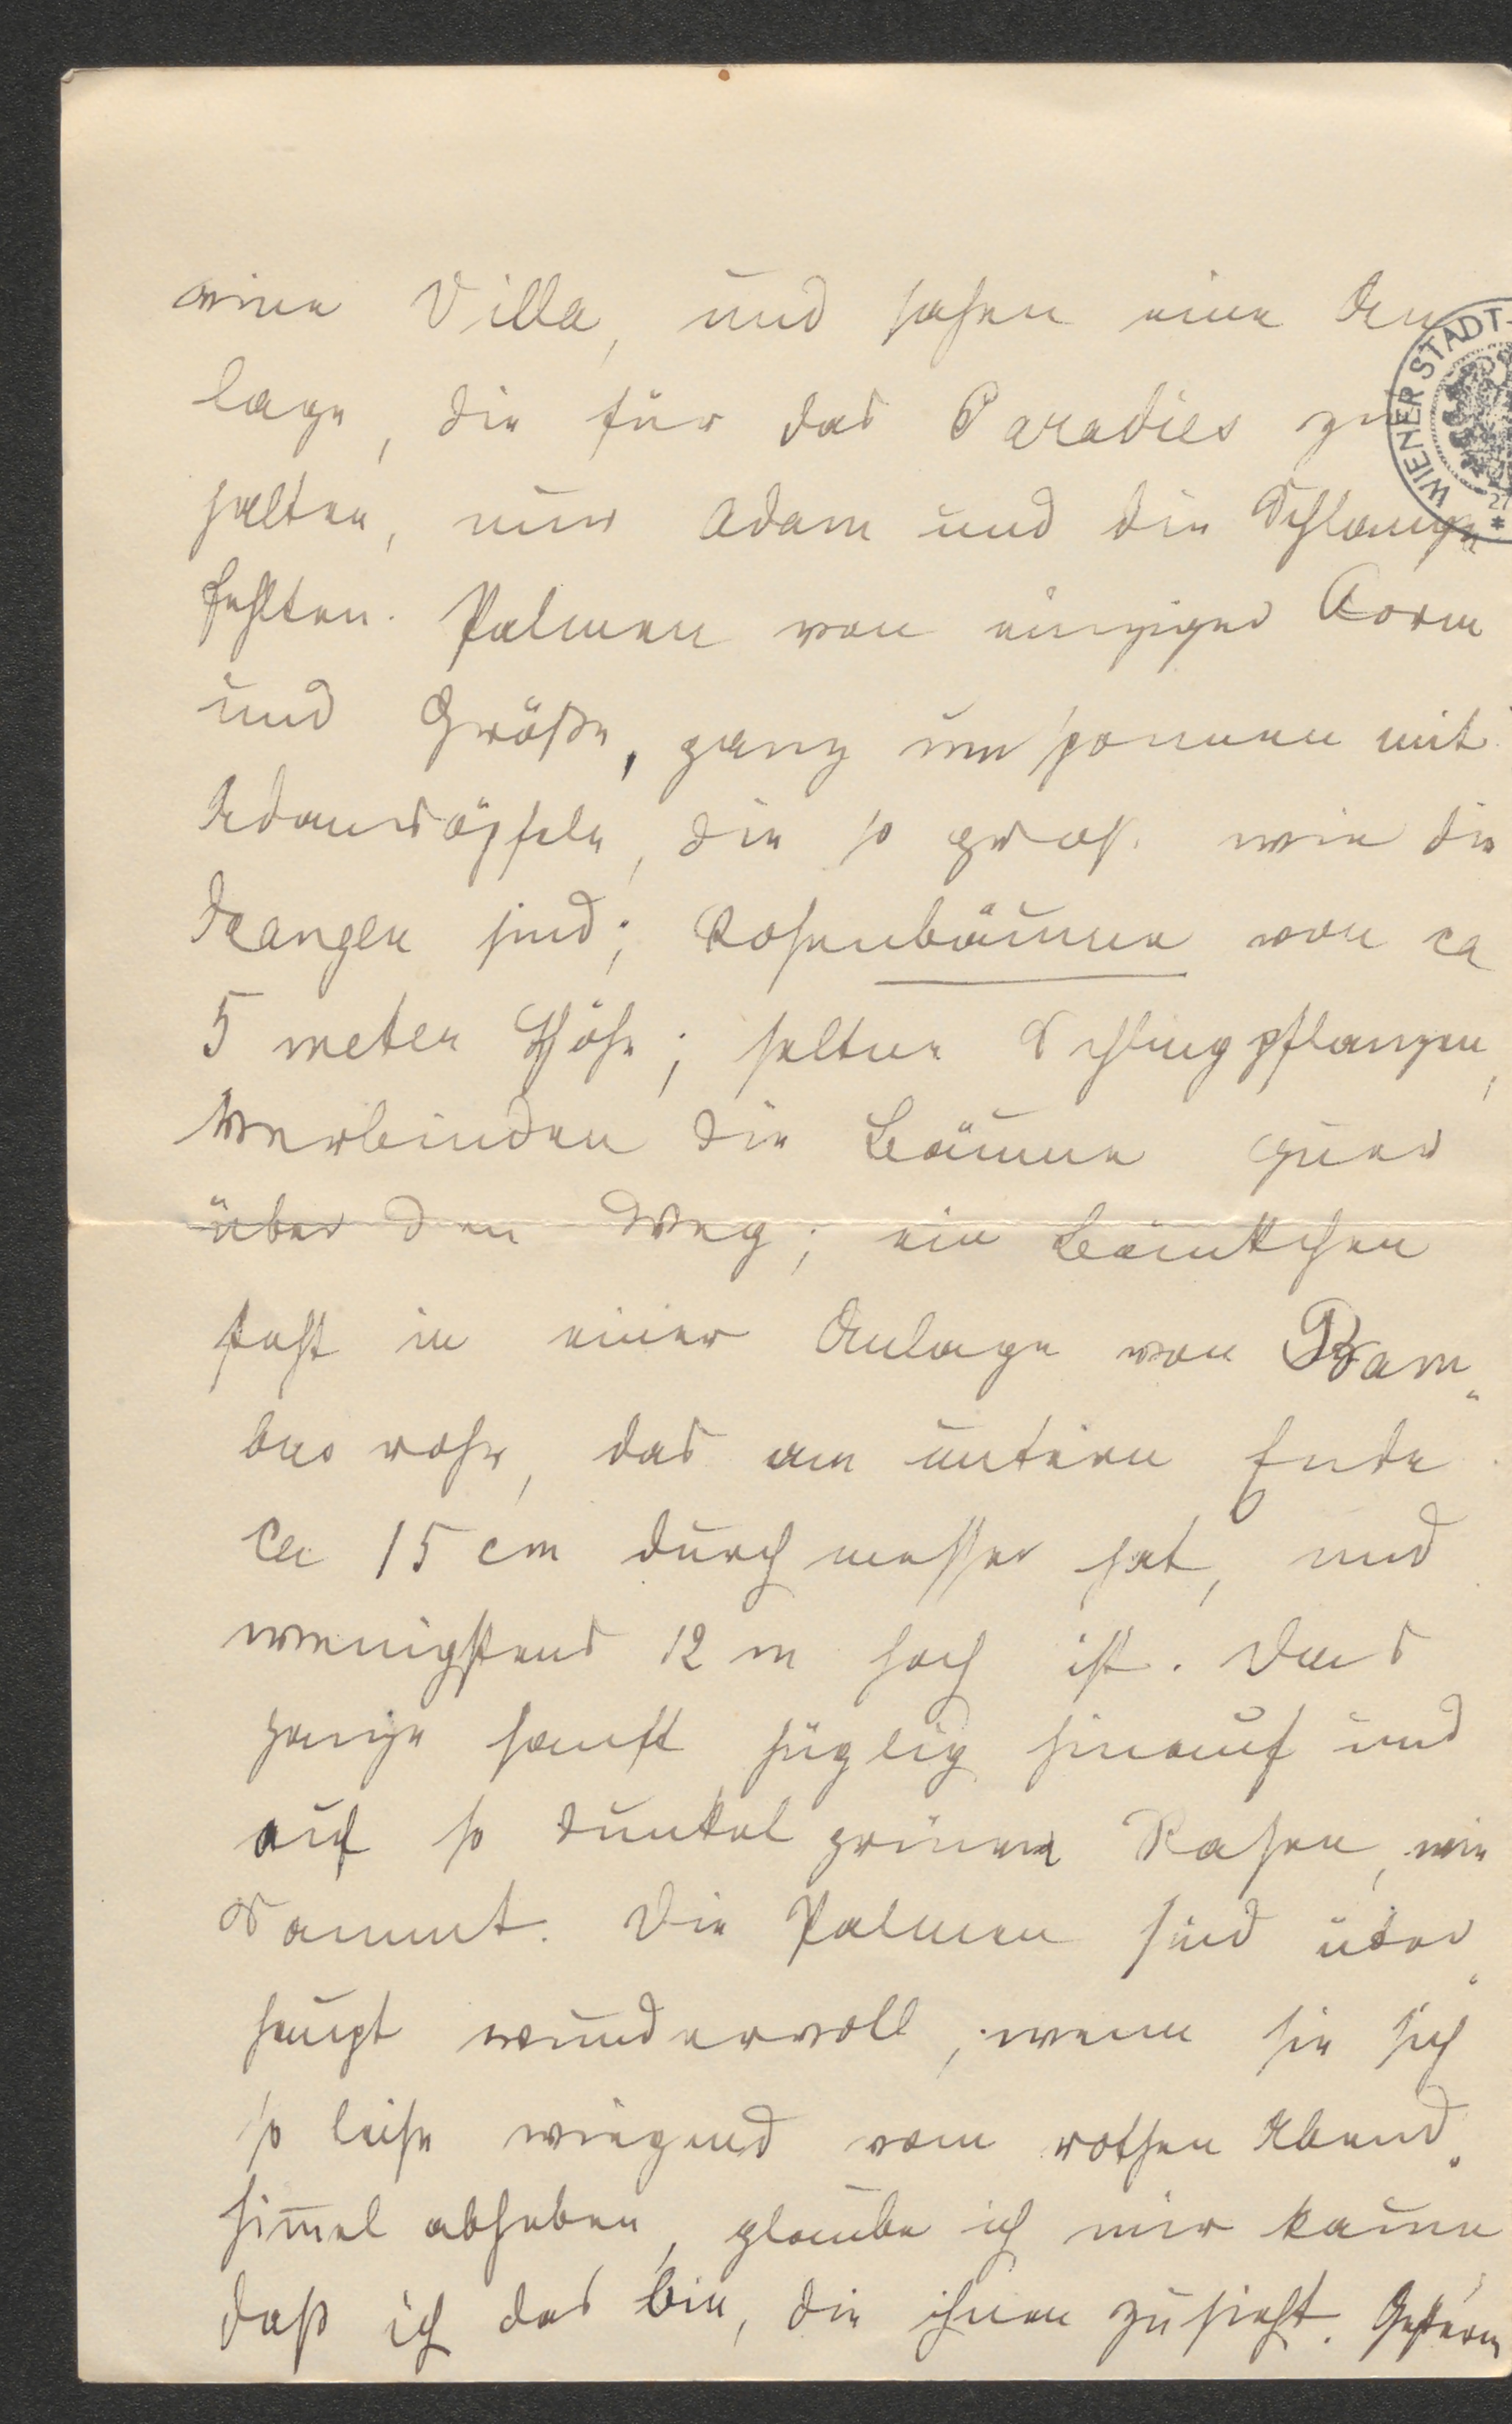 eine Villa, und sahen eine An
lage, die für das Paradies zu
halten, nur Adam und die Schlange
fehlten. Palmen von einziger Form
und Größe, ganz umsponnen mit
Adamsäpfeln, die so groß wie die
Orangen sind; Rosenbäume von ca
5 meter Höhe; seltene Schlingpflanzen,
verbinden die Bäume quer
über den Weg; ein Bänkchen
steht in einer Anlage von Bam„
bus rohr, das am untern Ende
ca 15 cm durchmesser hat, und
wenigstens 12 m hoch ist. Das
ganze sanft hüglig hinauf und
auf so dunkel grünem Rasen, wie
Sammt. Die Palmen sind über„
haupt wundervoll, wenn sie sich
so leise wiegend vom rothen Abend„
him̅el abheben, glaube ich mir kaum
daß ich das bin, die ihnen zusieht. Gestern
WIENER STADT-